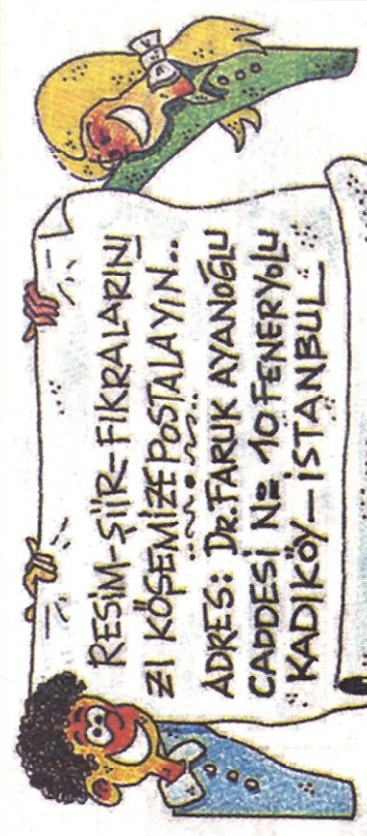 RESİM-ŞİİR-FIKRALARINI
ZI KÖŞEMİZE POSTALAYIN..
ADRES: DR. FARUK AYANOĞLU
CADDESİ No= 10 FENERYOLU
KADIKÖY-İSTANBUL